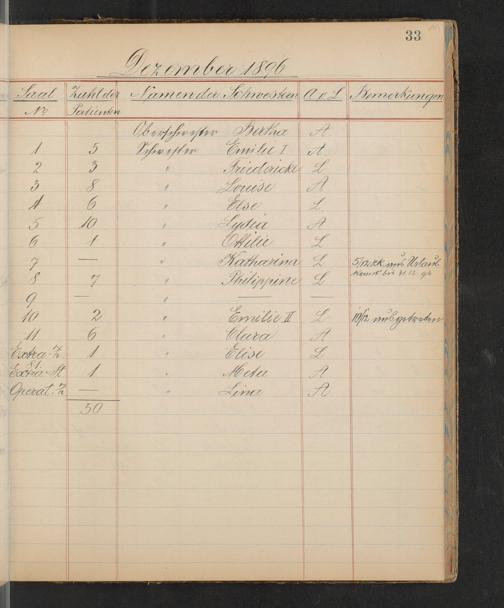 33
Dezember 1896
Saal Nr Zahl der Patienten Namen der Schwestern A o L Bemerkungen
Oberschwester Bertha A
1 5 Schwester Emilie I A
2 3 " Friedericke L
3 8 " Louise A
4 6 " Else L
5 10 " Lydia A
6 1 " Ottilie L
7 — " Katharina L 5/12 aus Urlaub
bis 31.12. 96
8 7 " Philippine L
9 — " — —
10 2 " Emilie II L 10/12 ausgetreten
11 6 " Clara A
Extra Z 1 " Elise L
Extra 1 " Meta A
Operat. Z — " Lina A
50